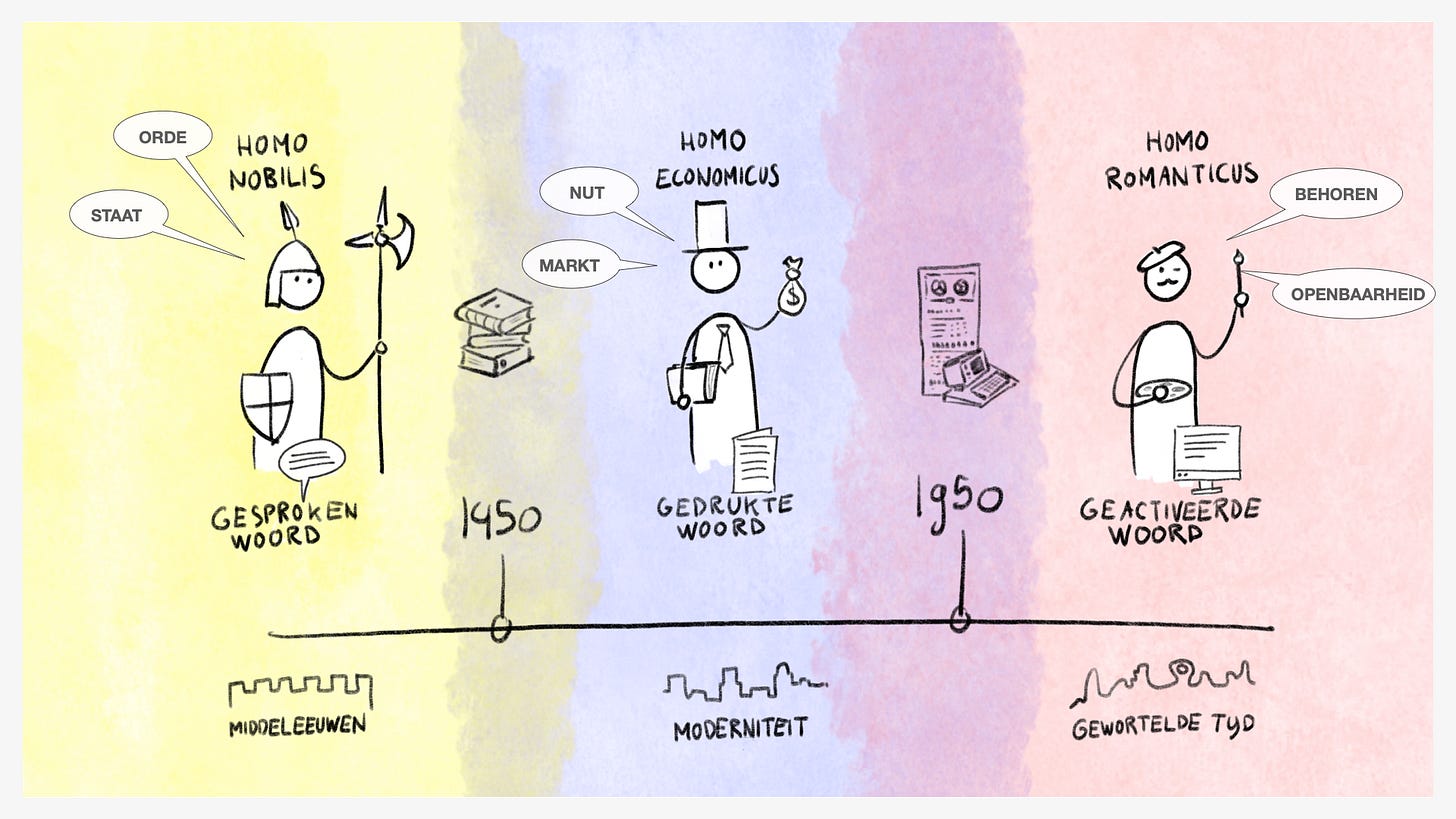 ORDE
STAAT
HOMO
NOBILIS
GESPROKEN
WOORD
1450
NUT
MARKT
HOMO
ECONOMICUS
$
GEDRUKTE
WOORD
1950
HOMO
ROMANTICUS
BEHOREN
OPENBAARHEID
GEACTIVEERDE
WOORD
MIDDELEEUWEN
MODERNITEIT
GEWORTELDE TYD